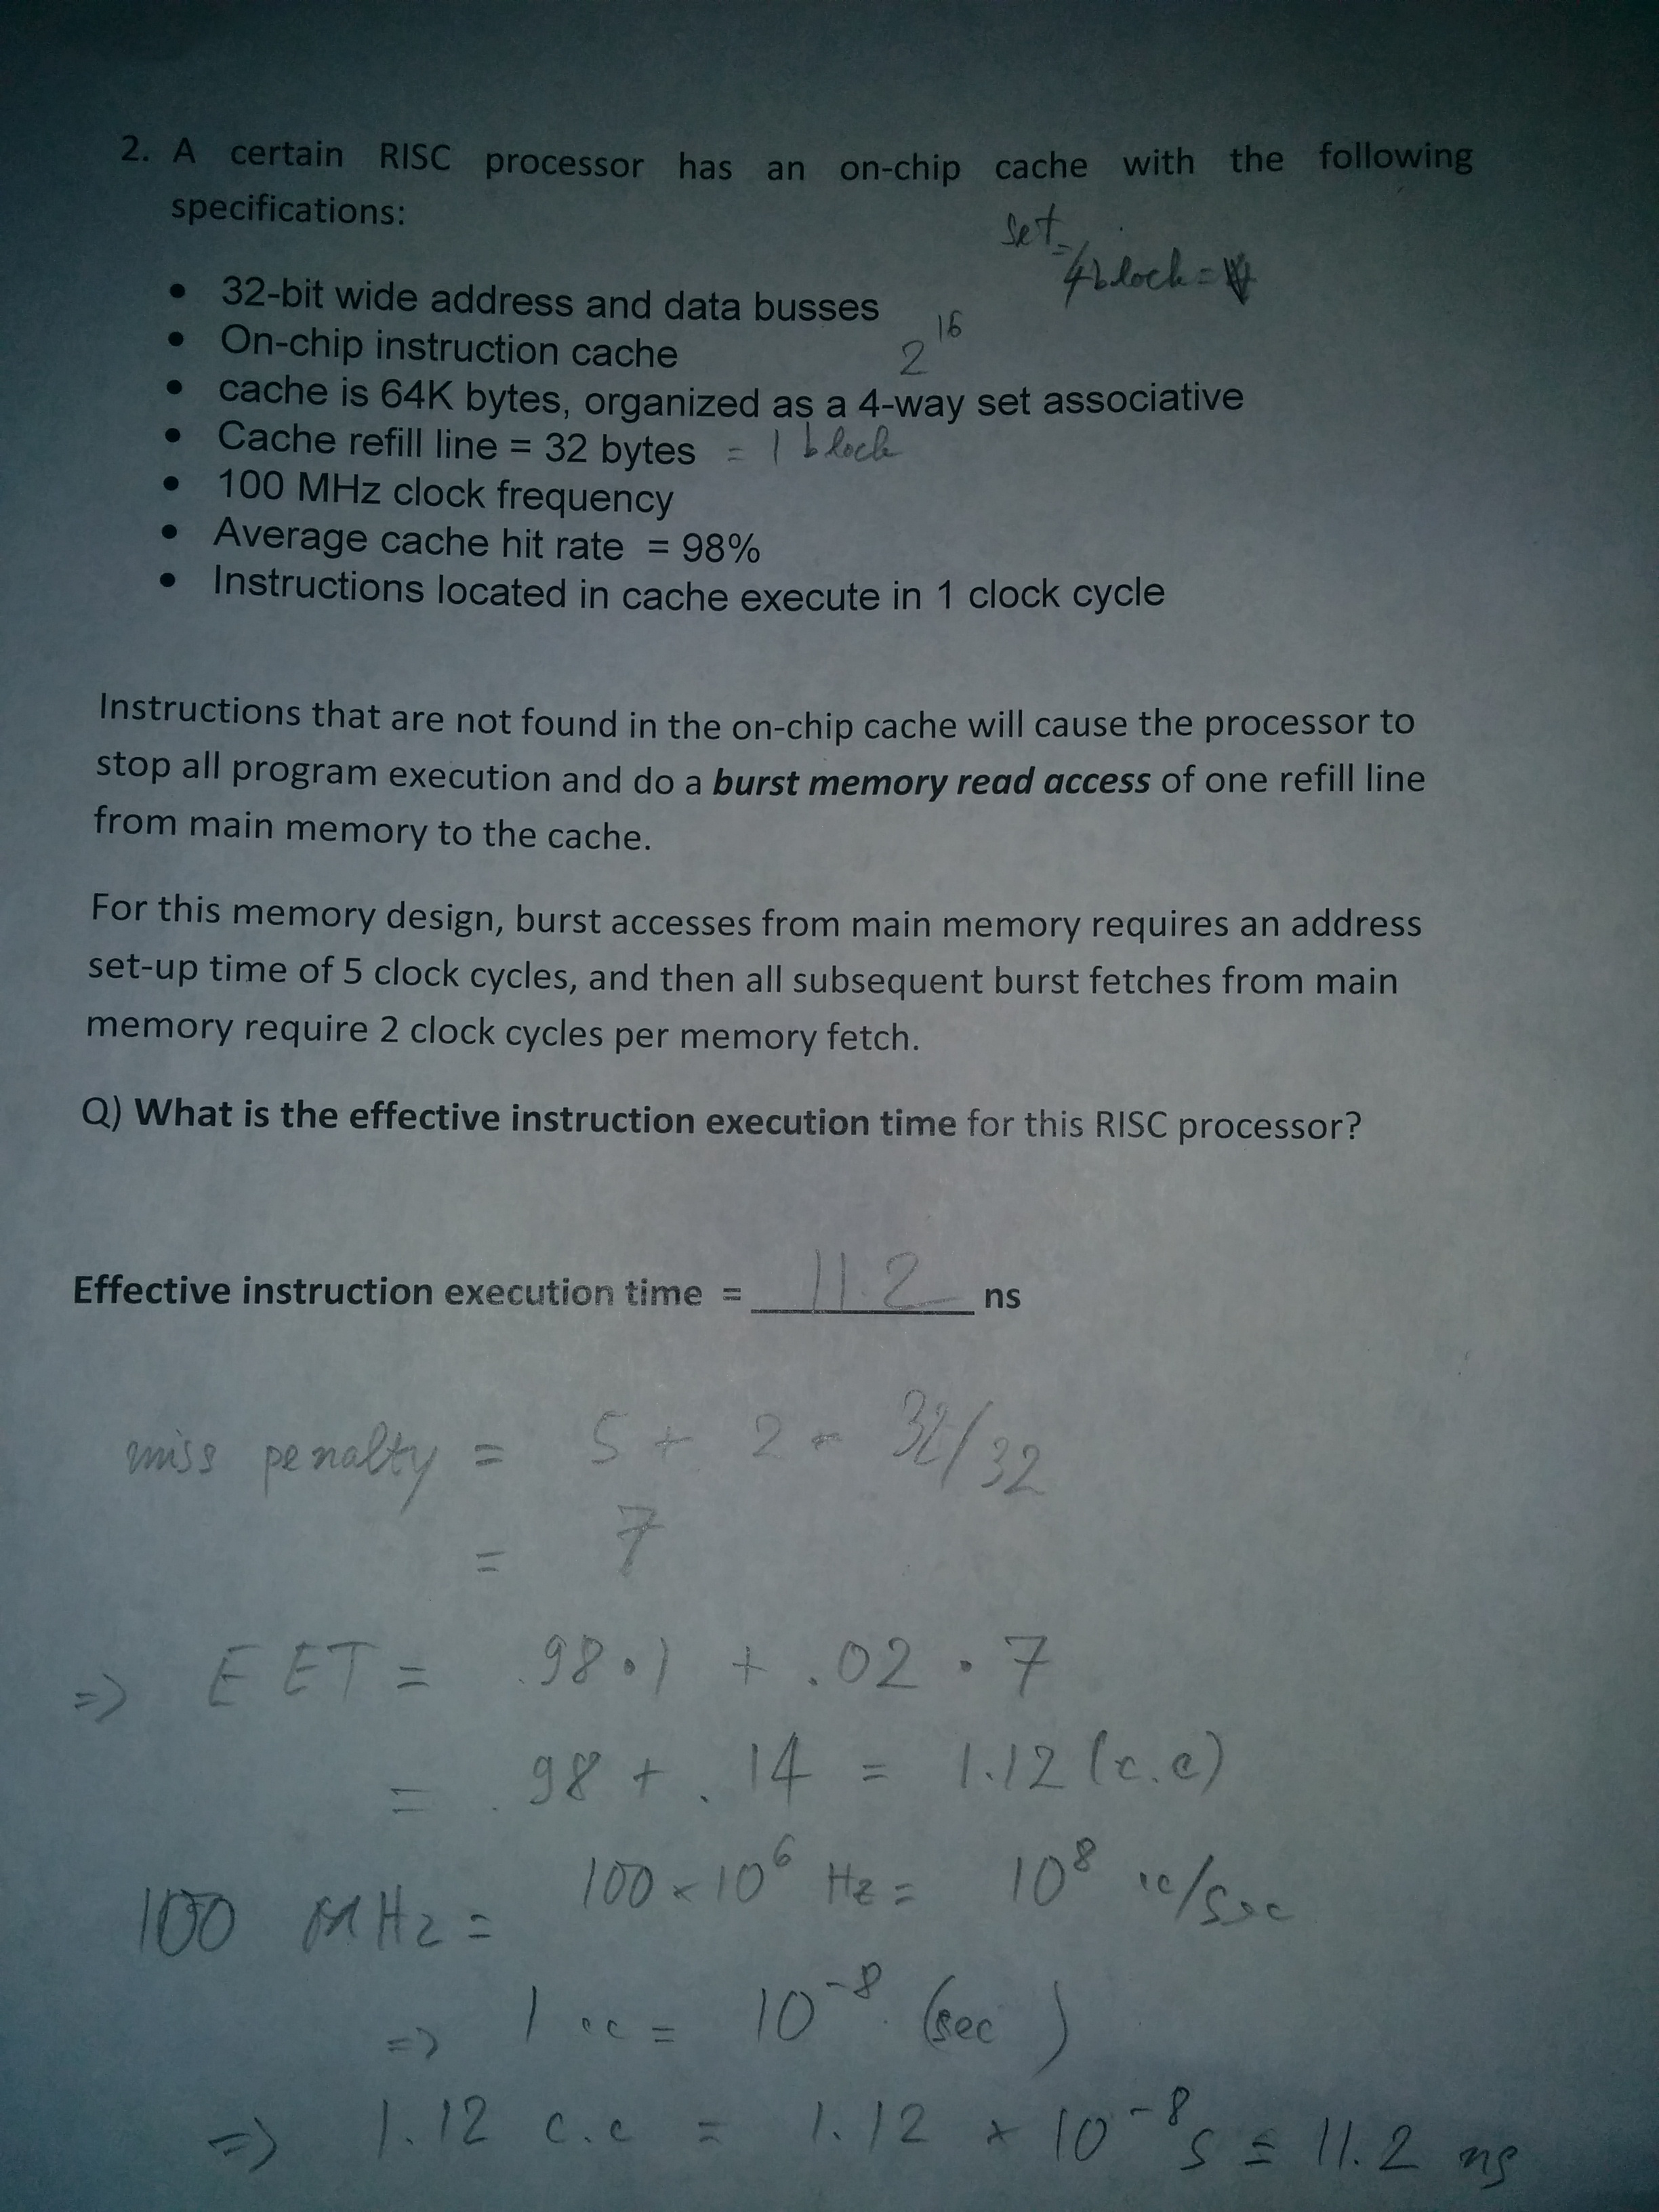 2. A certain RISC processor has an on-chip cache with the following
specifications:
set =
4block =
• 32-bit wide address and data busses
• On-chip instruction cache
2^16
• cache is 64K bytes, organized as a 4-way set associative
• Cache refill line = 32 bytes = 1 block
• 100 MHz clock frequency
• Average cache hit rate = 98%
• Instructions located in cache execute in 1 clock cycle
Instructions that are not found in the on-chip cache will cause the processor to
stop all program execution and do a burst memory read access of one refill line
from main memory to the cache.
For this memory design, burst accesses from main memory requires an address
set-up time of 5 clock cycles, and then all subsequent burst fetches from main
memory require 2 clock cycles per memory fetch.
Q) What is the effective instruction execution time for this RISC processor?
Effective instruction execution time = 11.2 ns
miss penalty = 5 + 2 * 32/32
= 7
=> EET = .98 • 1 + .02 • 7
= .98 + .14 = 1.12 (c.c)
100 MHz = 100 × 10^6 Hz = 10^8 cc/sec
=> 1 cc = 10^-8 (sec)
=> 1.12 c.c = 1.12 × 10^-8 s = 11.2 ns